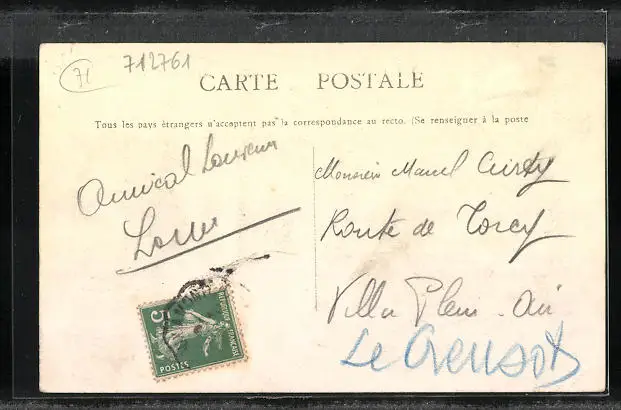 712761
71
CARTE POSTALE
Tous les pays étrangers n'acceptent pas la correspondance au recto. (Se renseigner à la poste
Amical
Monsieur Marcel
Route de Torcy
Villa Plein-Air
Le Creusot
5
REPUBLIQUE FRANÇAISE
POSTES